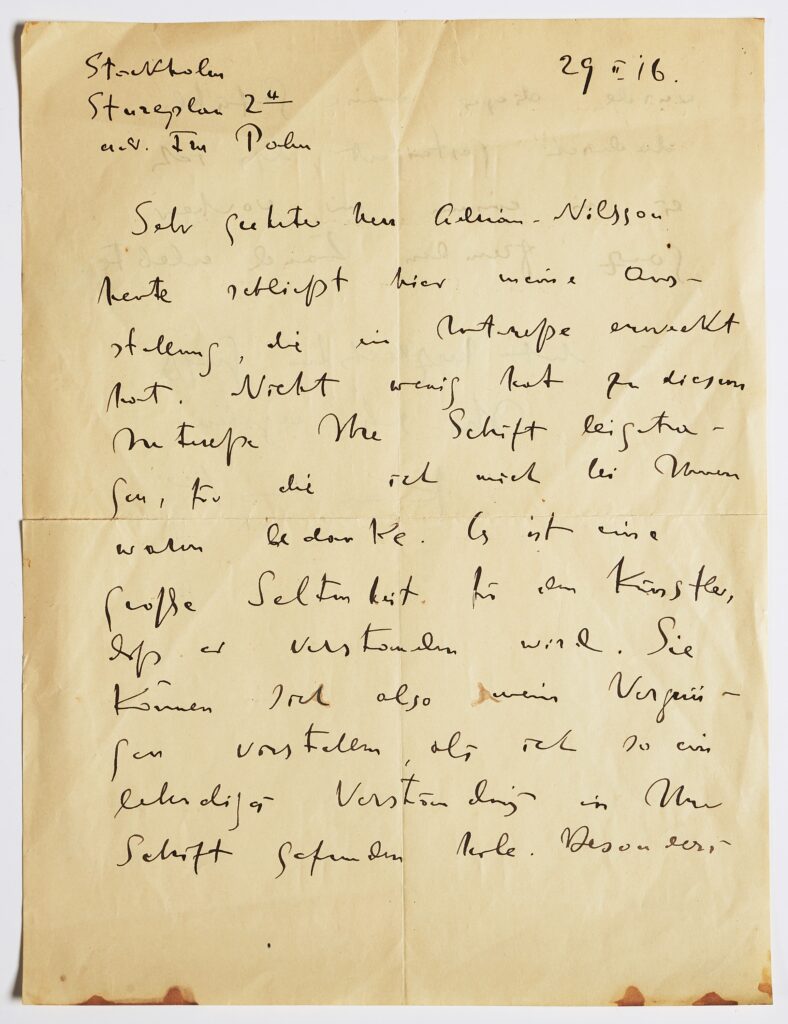 Stockholm
Stureplan 2
29 II 16.
adr. Palm
Sehr geehrter Herr Adrian-Nilsson
heute schließt hier meine Aus-
stellung, die ein Intereße erweckt
hat. Nicht wenig hat zu diesem
Intereße Ihre Schrift beigetra-
gen, für die ich mich bei Ihnen
warm bedanke. Es ist eine
große Seltenheit für den Künstler,
daß er verstanden wird. Sie
können sich also mein Vergnü-
gen vorstellen, als ich so ein
lebendiges Verständnis in Ihrer
Schrift gefunden habe. Besonders